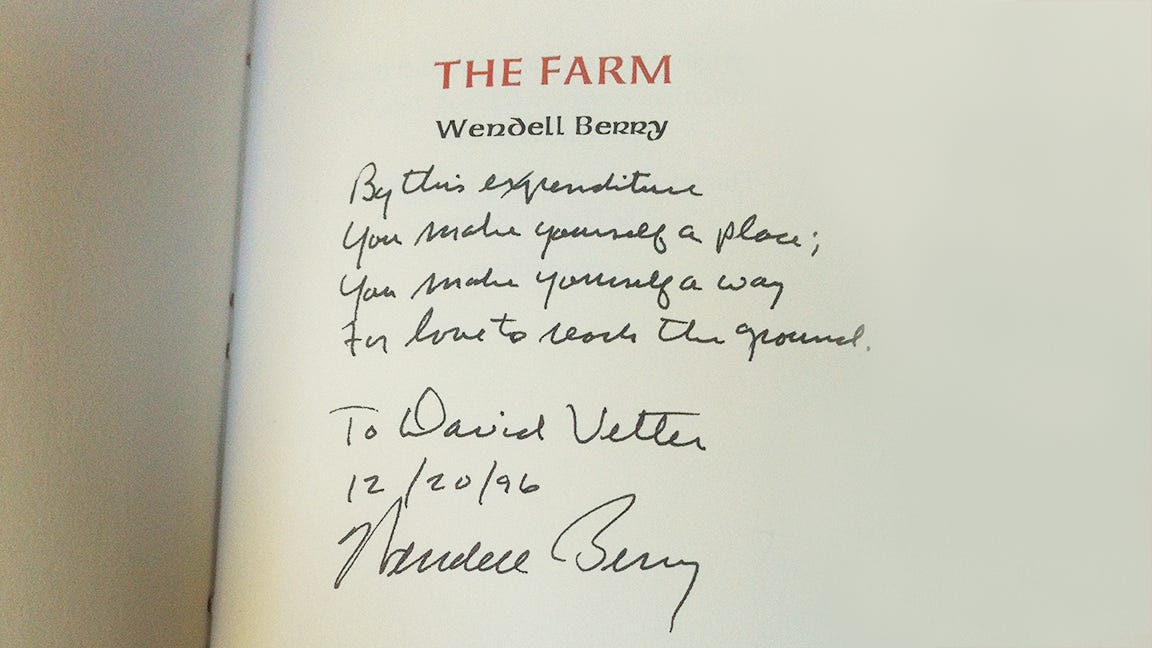 THE FARM
Wendell Berry
By this expenditure
You make yourself a place;
You make yourself a way
For love to reach the ground.
To David Vetter
12/20/96
Wendell Berry